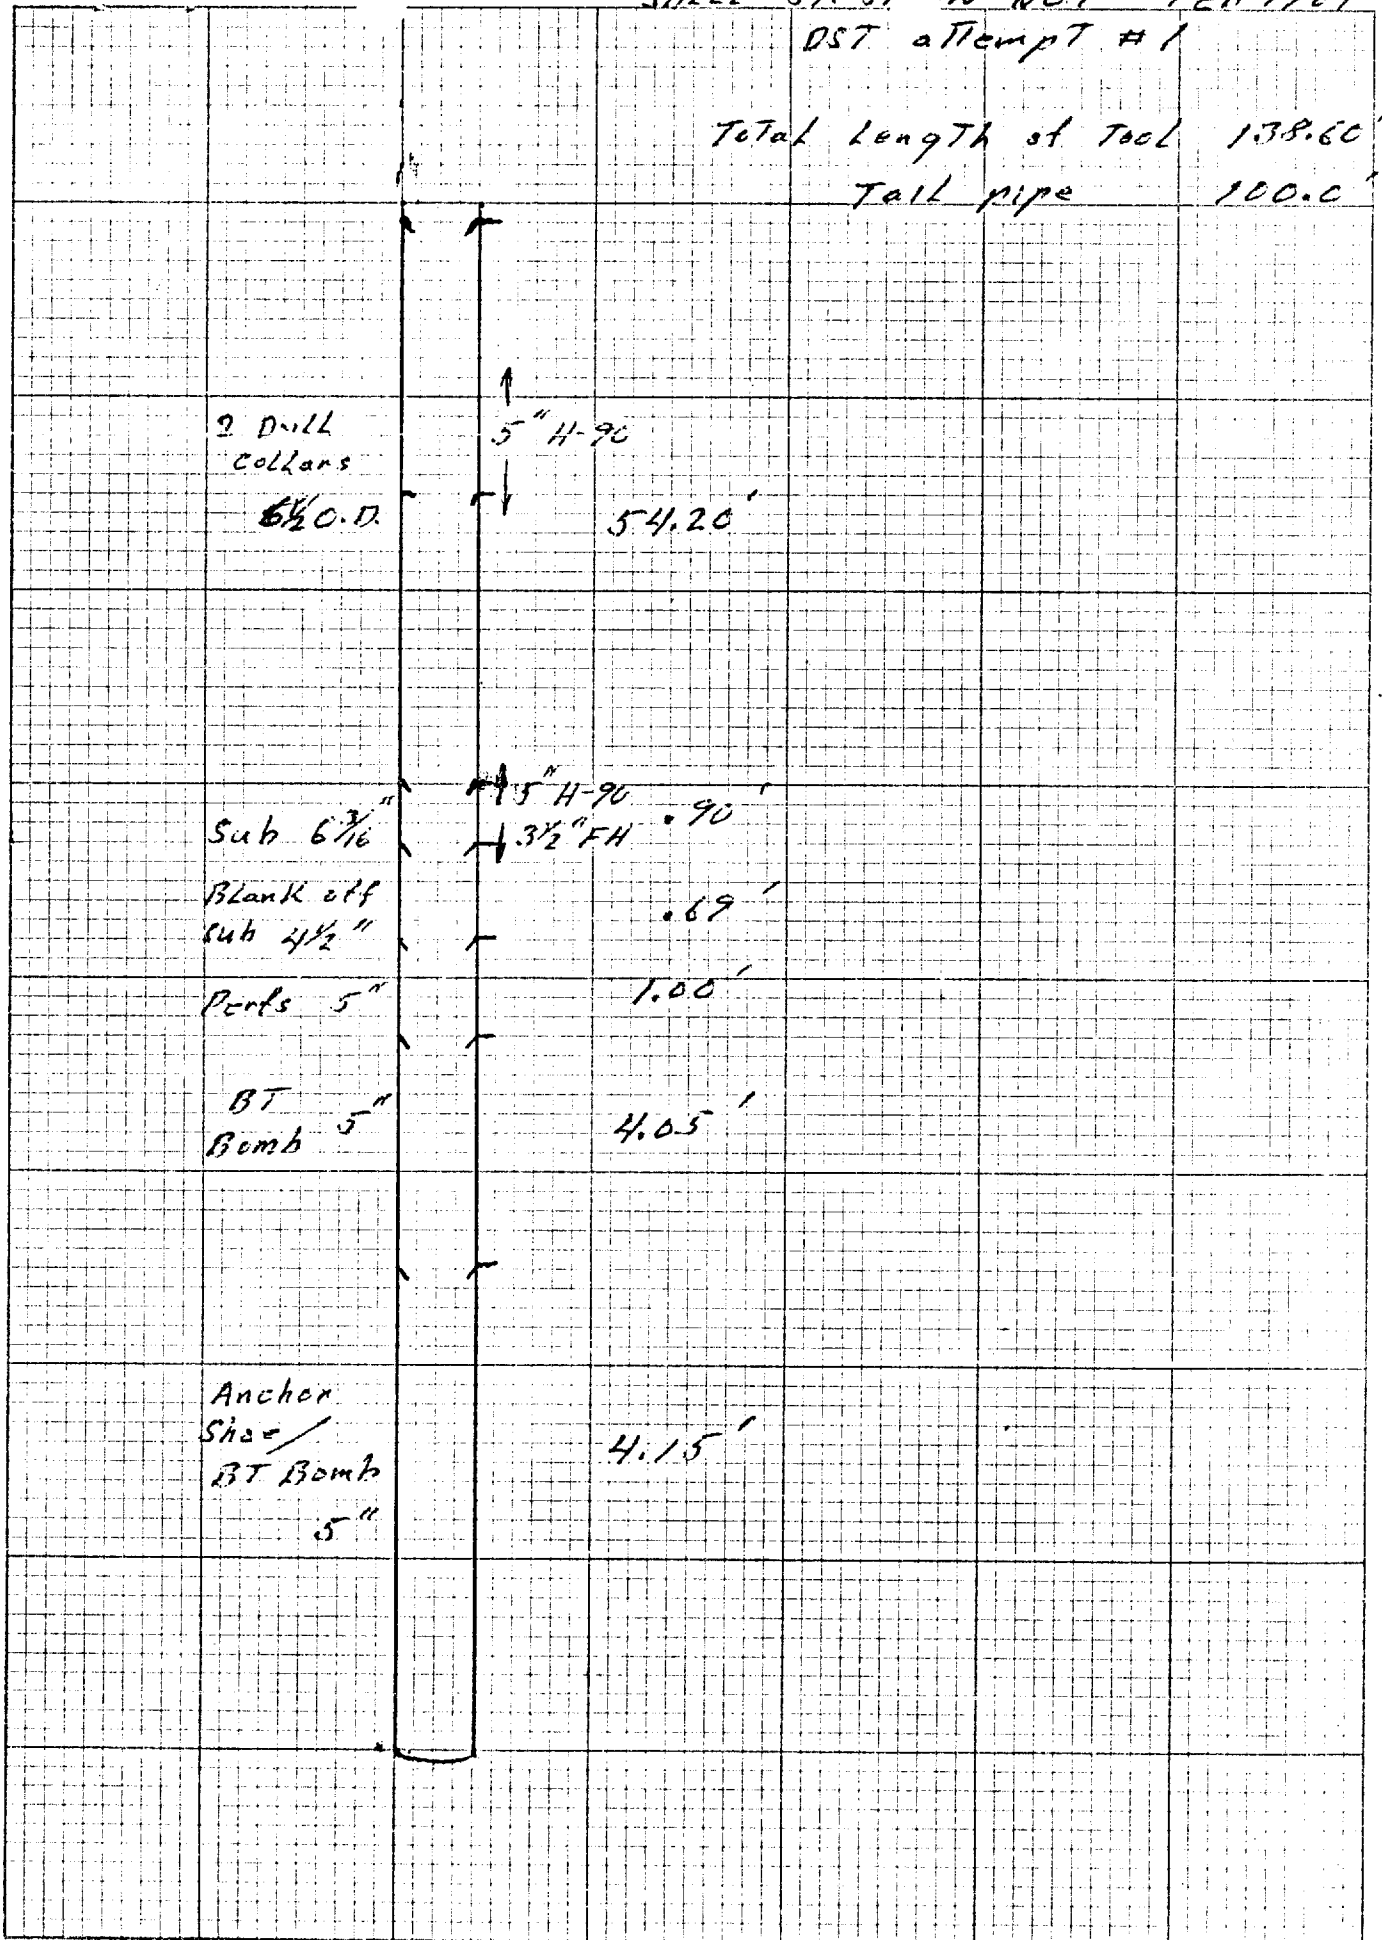 DST attempt # 1
Total Length of Tool 138.60'
Tail pipe 100.0'
2 Drill
Collars
6½ O.D.
5" H-90
54.20'
Sub 6 3/16"
5" H-90
3½" FH
.90'
Blank off
sub 4½"
.69'
Perfs 5"
1.00'
BT
Bomb 5"
4.05'
Anchor
Shoe/
BT Bomb
5"
4.15'